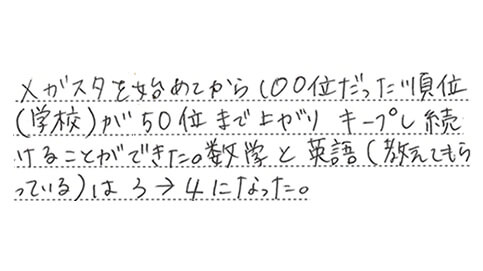 メガスタを始めてから100位だった順位
(学校)が50位まで上がり キープし続
けることができた。数学と英語(教えてもら
っている)は3→4になった。